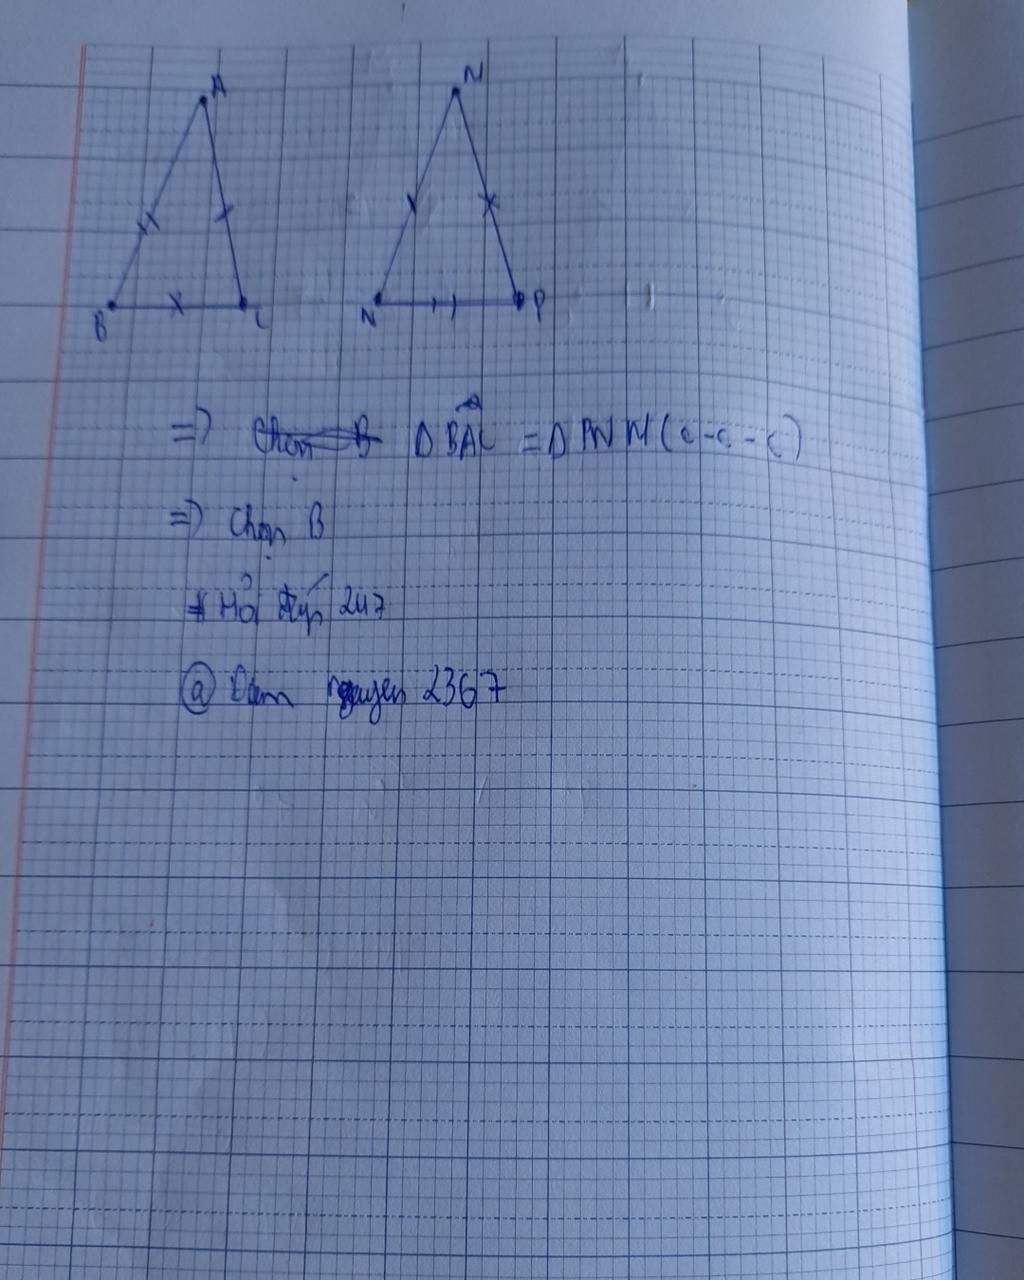 A
N
B
C
N
P
=> Chọn B Δ BAC = Δ PNN (c-c-c)
=> Chọn B
* Hỏi đáp 247
@ nguyen 2367